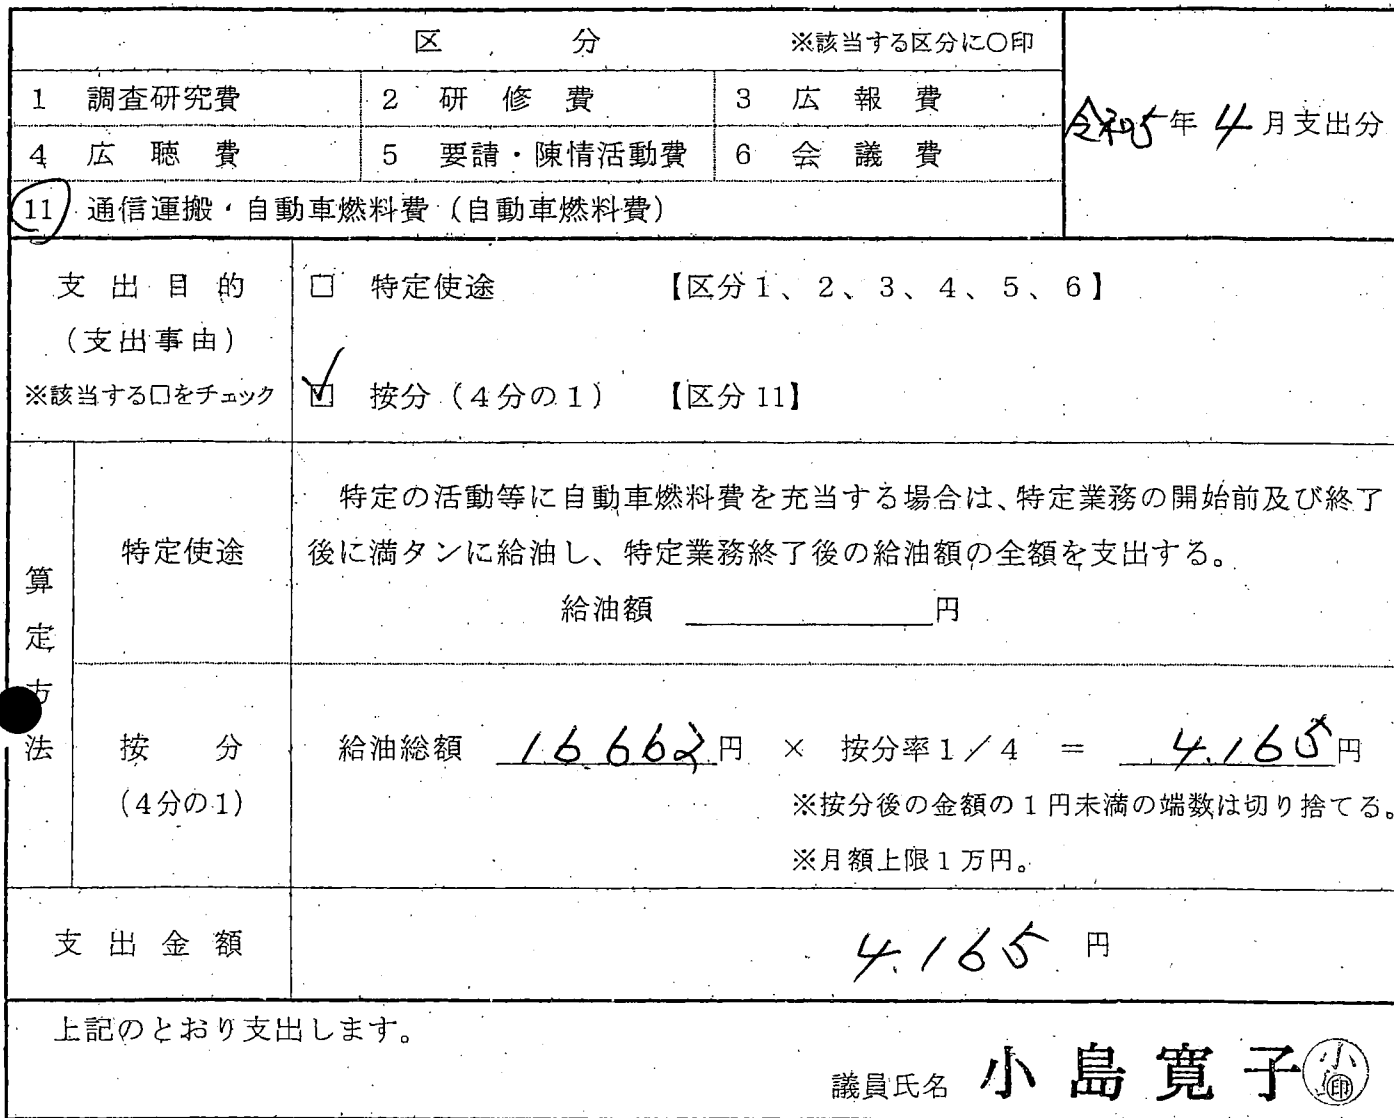 区分 ※該当する区分に○印
1 調査研究費 2 研修費 3 広報費
令和5年4月支出分
4 広聴費 5 要請・陳情活動費 6 会議費
11 通信運搬・自動車燃料費(自動車燃料費)
支出目的
(支出事由)
※該当する□をチェック
□ 特定使途 【区分1、2、3、4、5、6】
☑ 按分(4分の1) 【区分11】
算定方法
特定使途
特定の活動等に自動車燃料費を充当する場合は、特定業務の開始前及び終了
後に満タンに給油し、特定業務終了後の給油額の全額を支出する。
給油額 円
按分
(4分の1)
給油総額 16.662円 × 按分率1/4 = 4.165円
※按分後の金額の1円未満の端数は切り捨てる。
※月額上限1万円。
支出金額 4.165 円
上記のとおり支出します。
議員氏名 小島寛子 小印